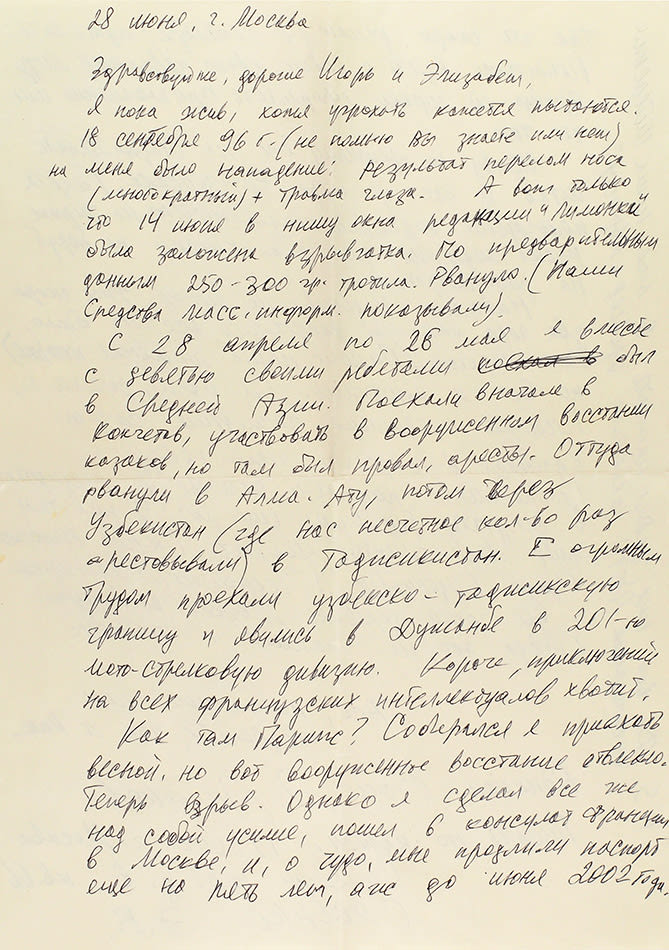 28 июня, г. Москва
Здравствуйте, дорогие Игорь и Элизабет,
Я пока жив, хотя угрохать кажется пытаются.
18 сентября 96 г. (не помню Вы знаете или нет)
на меня было нападение: результат перелом носа
(многократный) + травма глаза. А вот только
что 14 июня в нишу окна редакции "Лимонки"
была заложена взрывчатка. По предварительным
данным 250-300 гр. тротила. Рвануло. (Наши
средства масс. информ. показывали).
С 28 апреля по 26 мая я вместе
с девятью своими ребятами поехал в был
в Средней Азии. Поехали вначале в
Кокчетав, участвовать в вооруженном восстании
казаков, но там был провал, аресты. Оттуда
рванули в Алма-Ату, потом через
Узбекистан (где нас несчетное кол-во раз
арестовывали) в Таджикистан. С огромным
трудом проехали узбекско-таджикскую
границу и явились в Душанбе в 201-ю
мото-стрелковую дивизию. Короче, приключений
на всех французских интеллектуалов хватит.
Как там Париж? Собирался я приехать
весной, но вот вооруженное восстание отвлекло.
Теперь взрыв. Однако я сделал все же
над собой усилие, пошел в консулат Франции
в Москве, и, о чудо, мне продлили паспорт
еще на пять лет, аж до июня 2002 года.